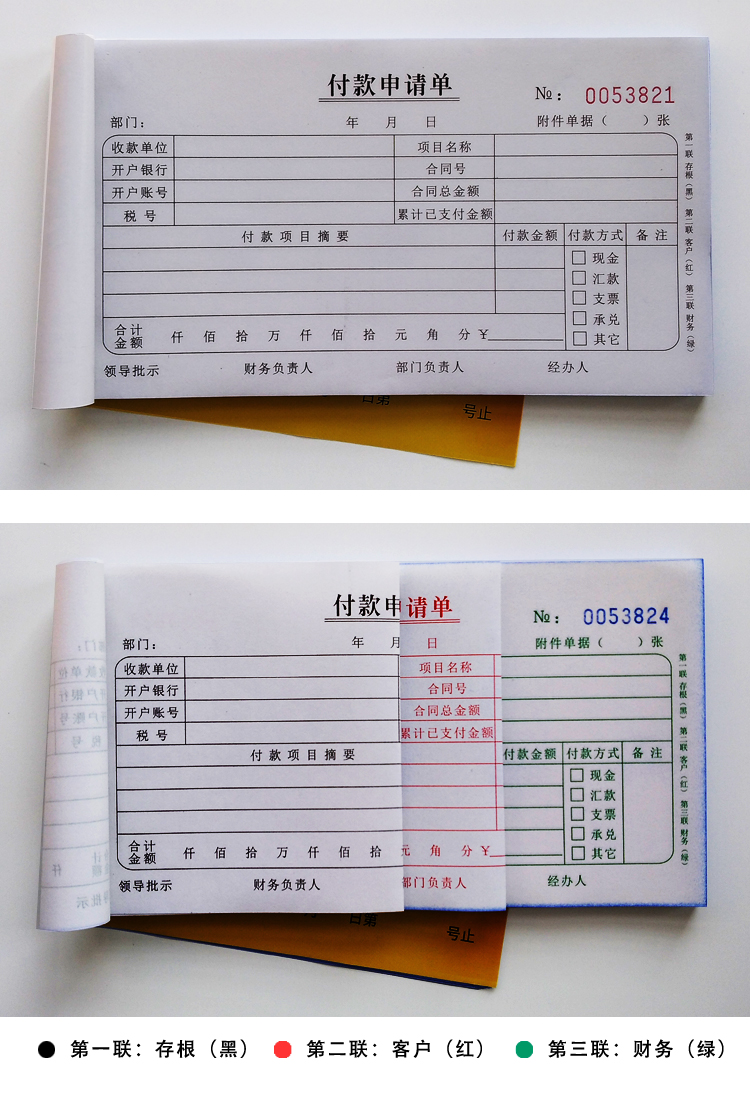 付款申请单
№： 0053821
部门： 年 月 日 附件单据（ ）张
收款单位 项目名称
开户银行 合同号
开户账号 合同总金额
税号 累计已支付金额
付款项目摘要 付款金额 付款方式 备注
现金
汇款
支票
承兑
其它
合计金额 仟 佰 拾 万 仟 佰 拾 元 角 分 ¥
领导批示 财务负责人 部门负责人 经办人
第一联 存根（黑） 第二联 客户（红） 第三联 财务（绿）
号止
付款申请单
№： 0053824
部门： 年 月 日 附件单据（ ）张
收款单位 项目名称
开户银行 合同号
开户账号 合同总金额
税号 累计已支付金额
付款项目摘要 付款金额 付款方式 备注
现金
汇款
支票
承兑
其它
合计金额 仟 佰 拾 万 仟 佰 拾 元 角 分 ¥
领导批示 财务负责人 部门负责人 经办人
第一联 存根（黑） 第二联 客户（红） 第三联 财务（绿）
号止
第一联：存根（黑） 第二联：客户（红） 第三联：财务（绿）